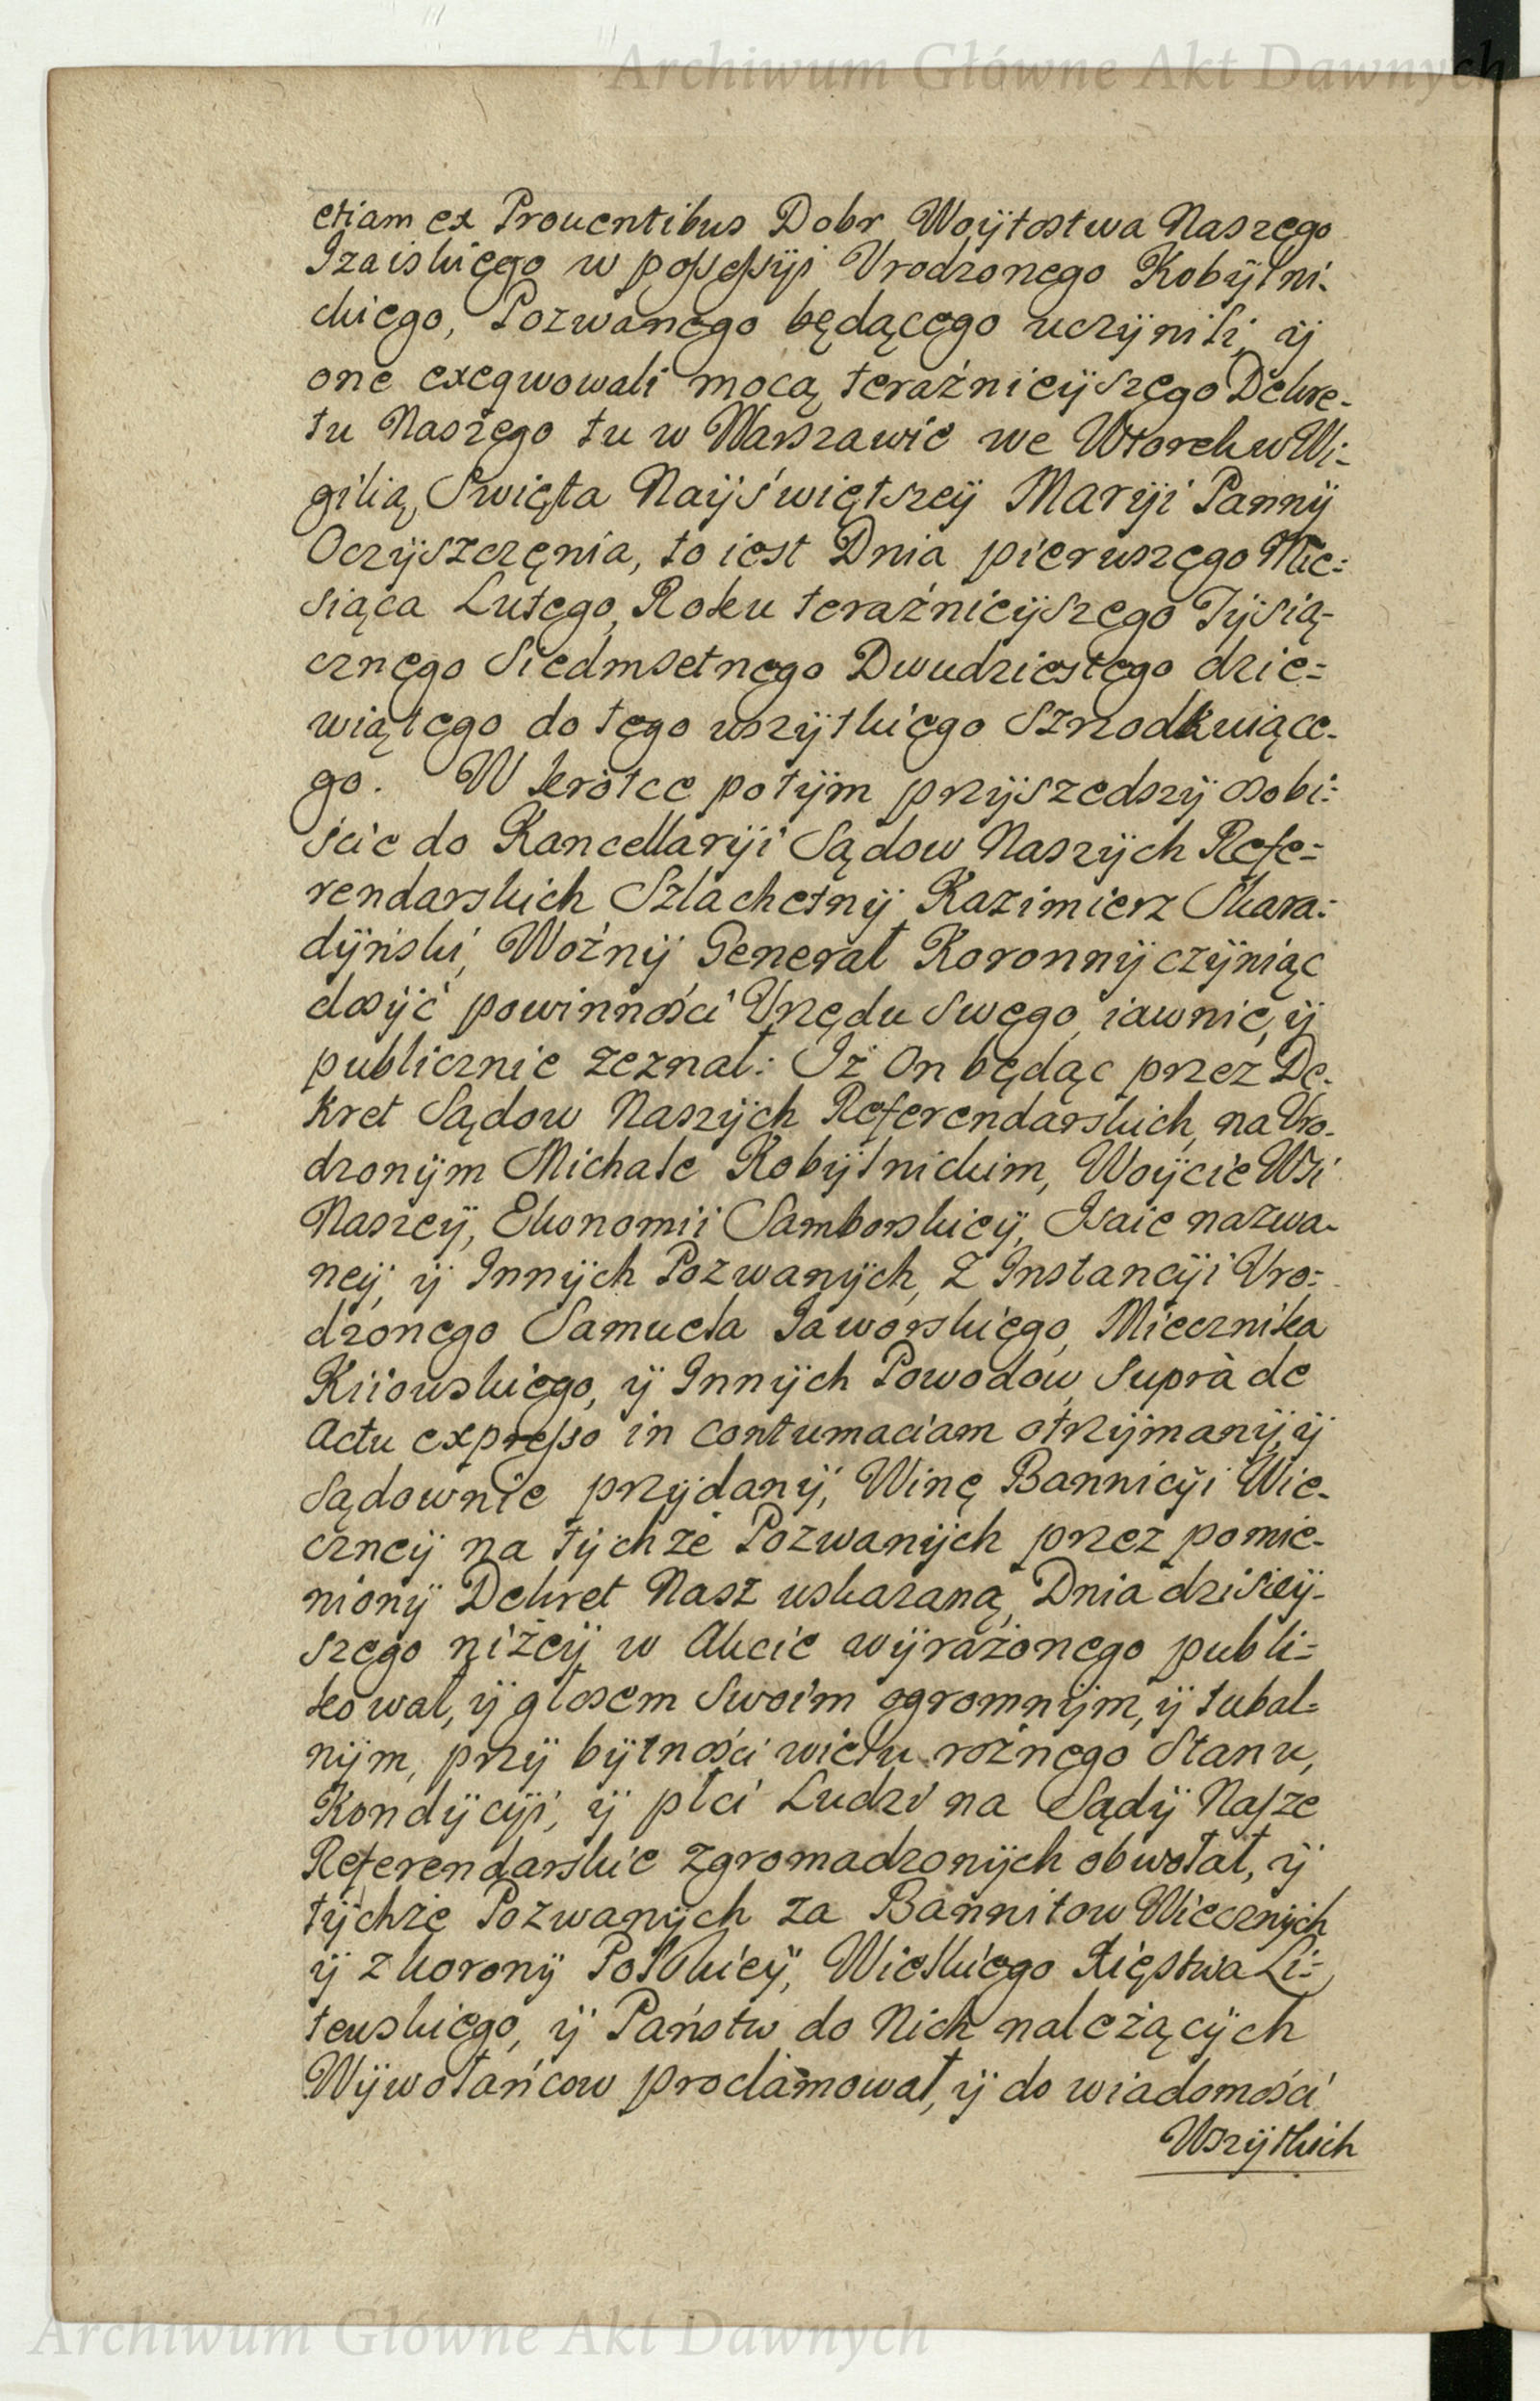 Archiwum Główne Akt Dawnych
etiam ex Prouentibus Dobr Woÿtostwa Naszęgo
Izaiskięgo w possessÿi Vrodzonego Kobÿłni-
ckiego, Pozwanego będącego uczÿnili, ÿ
one exeqwowali mocą teraźnieÿszęgo Dekre-
tu Naszego tu w Warszawie we Wtorek w Wi-
gilią Swięta Naÿświętszeÿ Marÿi Pannÿ
Oczÿszczęnia, to iest Dnia pierwszęgo Mie-
siąca Lutego, Roku teraźnieÿszego Tÿsią-
cznęgo Siedmsetnęgo Dwudziestęgo dzie-
wiątego do tęgo wszÿtkięgo Szrodkuiące-
go. W krotce potÿm przÿszedszÿ osobi-
ście do Kancellarÿi Sądow Naszÿch Refe-
rendarskich Szlachetnÿ Kazimierz Skara-
dÿński, Woźnÿ Generał Koronnÿ czÿniąc
dosÿć powinności Vrzędu swęgo iawnie, ÿ
publicznie zeznał: Iż On będąc przez De-
kret Sądow Naszÿch Referendarskich, na Vro-
dzonÿm Michale Kobÿłnickim, Woÿcie Wsi
Naszeÿ, Ekonomii Samborskieÿ, Isaie nazwa-
neÿ, ÿ Innÿch Pozwanÿch, z Instancÿi Vro-
dzonego Samuela Jaworskięgo, Miecznika
Kiiowskięgo, ÿ Innÿch Powodow, suprà de
Actu expresso in contumaciam otrzÿmanÿ, ÿ
sądownie przÿdanÿ, Winę Bannicÿi Wie-
czneÿ na tÿchże Pozwanÿch przez pomie-
nionÿ Dekret Nasz wskazaną, Dnia dzisieÿ-
szęgo niżeÿ w Akcie wÿrażonego publi-
kował, ÿ głosem swoim ogromnÿm, ÿ tubal-
nÿm, przÿ bÿtności wielu rożnęgo Stanu,
Kondÿcÿi, ÿ płci Ludzi na Sądÿ Nasze
Referendarskie zgromadzonÿch obwołał, ÿ
tÿchże Pozwanÿch za Bannitow Wiecznÿch
ÿ z Koronÿ Polskieÿ, Wielkięgo Xięstwa Li-
tewskięgo, ÿ Państw do Nich należącÿch
Wÿwołańcow proclamował, ÿ do wiadomości
Wszÿtkich
Archiwum Główne Akt Dawnych